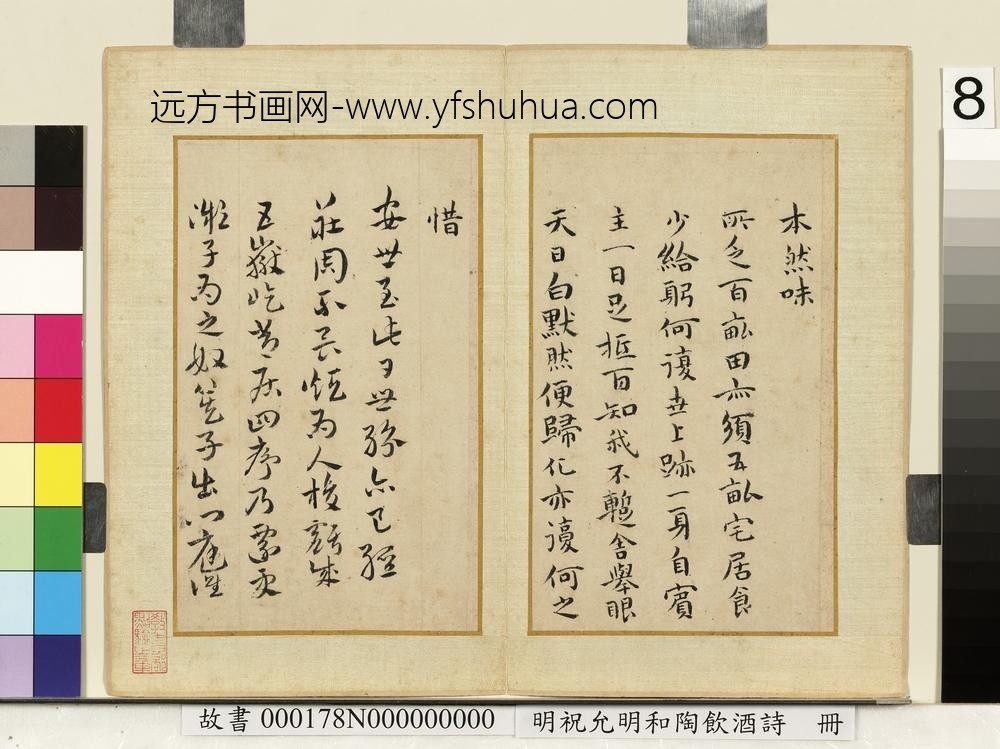 远方书画网-www.yfshuhua.com
8
本然味
所乏百畝田亦須五畝宅居食
少給躬何復世上跡一身自賓
主一日足抵百知我不蹔舍舉眼
天日白默然便歸化亦復何之
惜
安世至此日世務亦已經
莊周不為人
五嶽屹昔居四序乃
子為之奴笑子出門庭
故書 000178N000000000 明祝允明和陶飲酒詩 冊